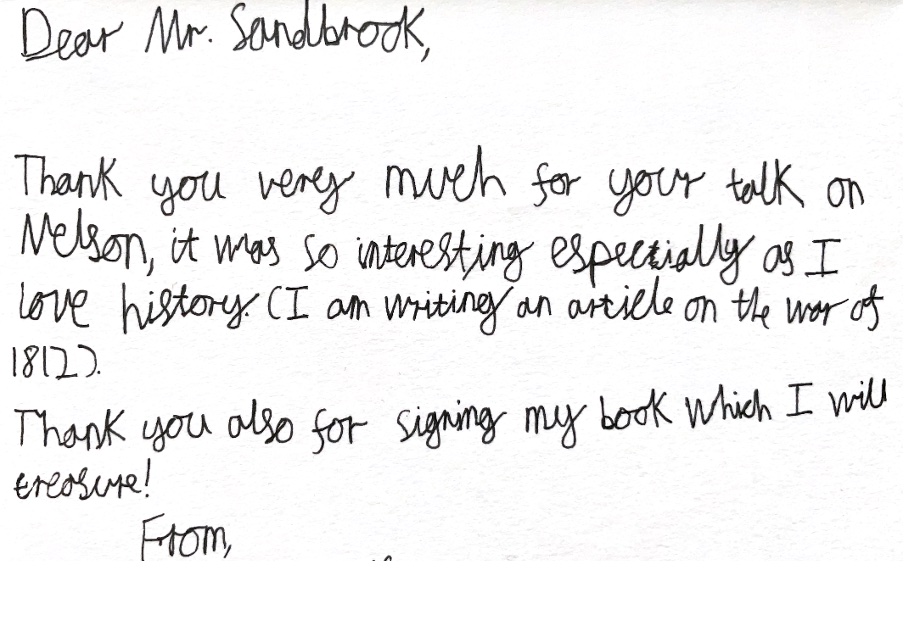 Dear Mr. Sandbrook,
Thank you very much for your talk on
Nelson, it was so interesting especially as I
love history. (I am writing an article on the war of
1812).
Thank you also for signing my book which I will
treasure!
From,